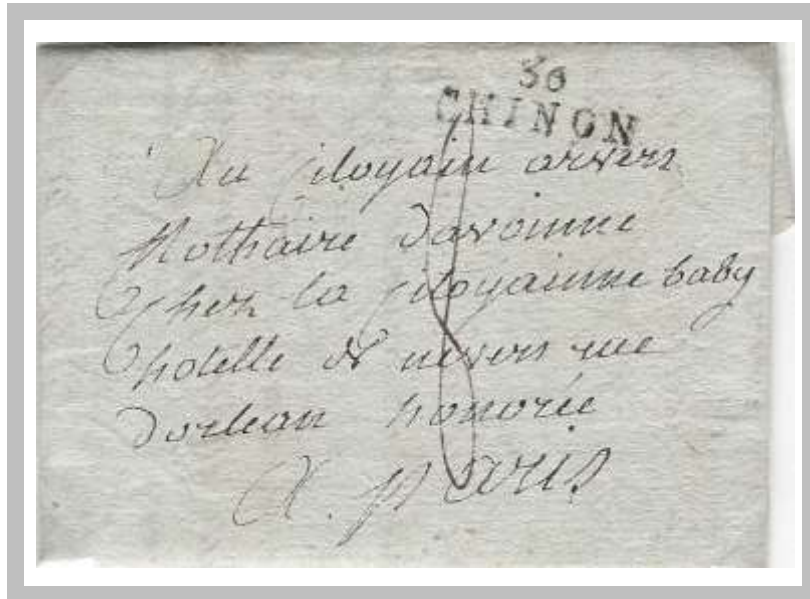 36
CHINON
Au citoyain arvers
Nothaire davoinne
Chez la citoyainne baby
hotelle de nevers rue
dorlean honorée
A. paris